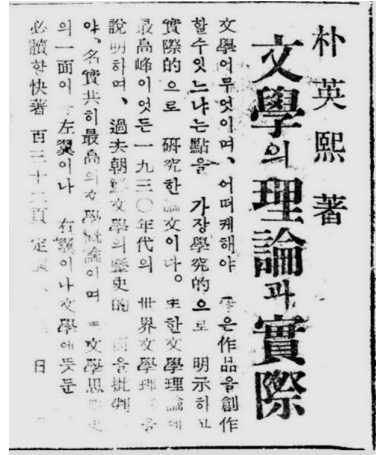 朴英熙 著
文學의 理論과 實際
文學이무엇이며、어떠케해야 좋은作品을創作
할수잇느냐는點을 가장學究的으로 明示하고
實際的으로 硏究한論文이다。또한文學理論에
最高峰이엇든一九三〇年代의 世界文學理 을
說明하며、過去朝鮮文學의歷史的 面을批判
야、名實共히最高의文學槪論이며 文學思 史
의一面이 左翼이나 右翼이나文學에뜻둔
必讀할快著 百三十二頁 定 日